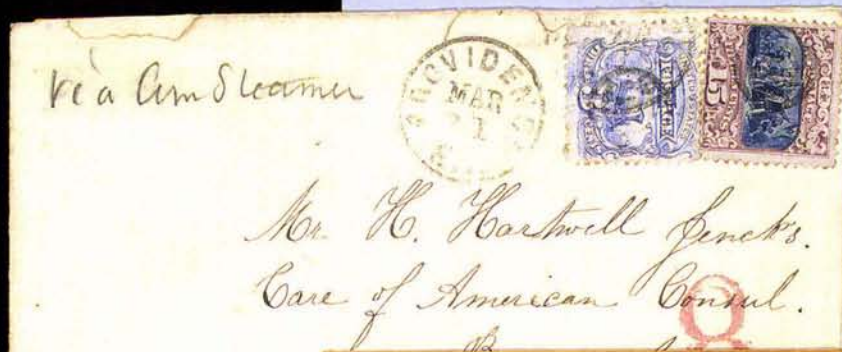 via Am Steamer
PROVIDENCE
MAR
21
15
Mr. H. Hartwell Jencks.
Care of American Consul.
8